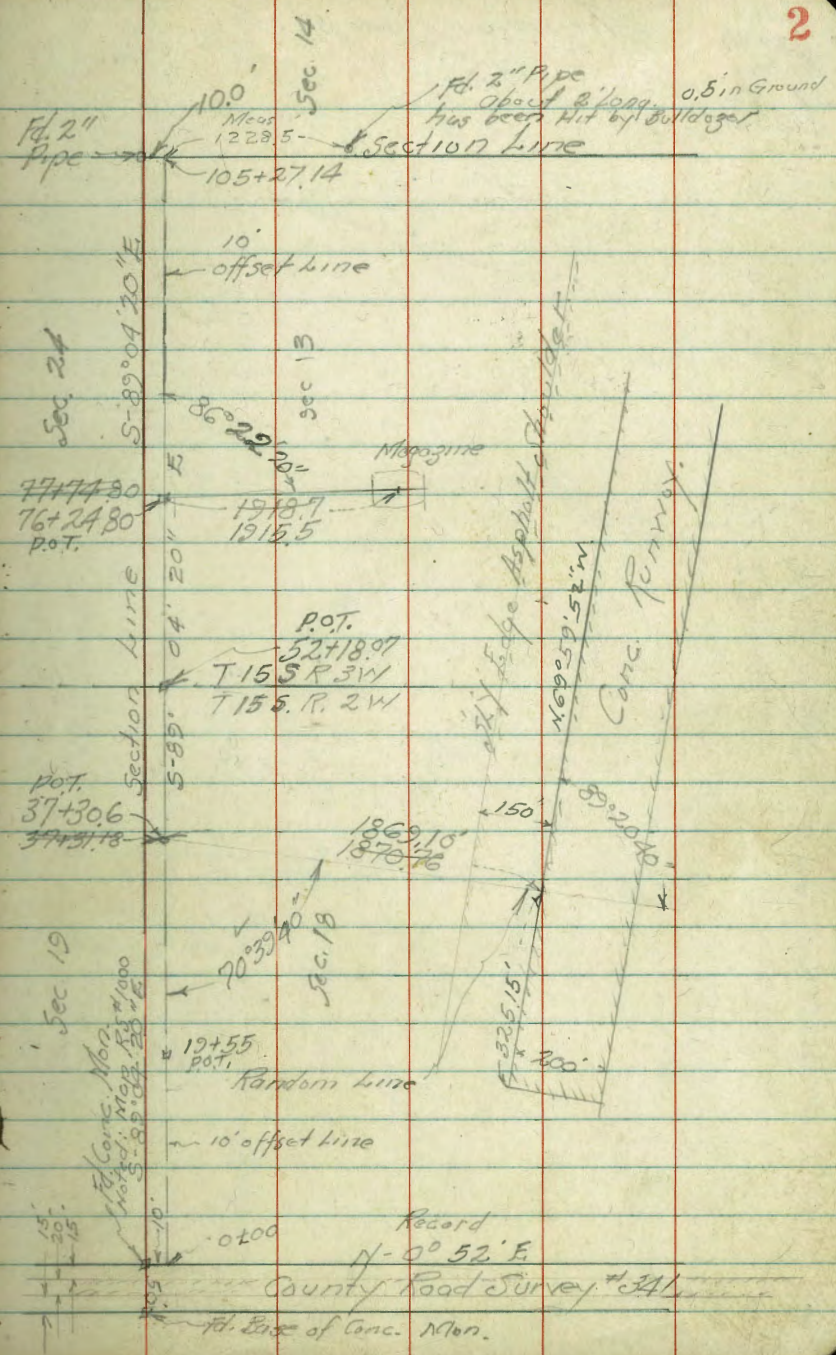 2
Sec. 14
10.0'
Fd. 2" Pipe
about 2' Long. 0.5' in Ground
has been Hit by Bulldozer
Fd. 2"
Pipe
Meas
1228.5
Section Line
105+27.14
10'
offset Line
S-89°04'20"E
Sec. 24
sec 13
86°22'20"
Magazine
77+74.80
76+24.80
P.O.T.
1918.7
1915.5
S-89° 04' 20" E
Section Line
P.O.T.
52+18.07
T 15 S R 3W
T 15 S. R. 2 W
Edge Asphalt Shoulder
N.69°59'52"W
Conc. Runway.
P.O.T.
37+30.6
37+31.18
150'
1869.10'
1870.76
89°20'40"
70°39'40"
Sec. 18
Sec. 19
325.15'
200'
19+55
P.O.T.
Random Line
Fd. Conc. Mon.
Noted: Map R.S #1000
S-89°04'20"E
10' offset Line
15'
20'
15'
10'
0+00
Record
N-0° 52' E
County Road Survey #341
Fd. Base of Conc. Mon.